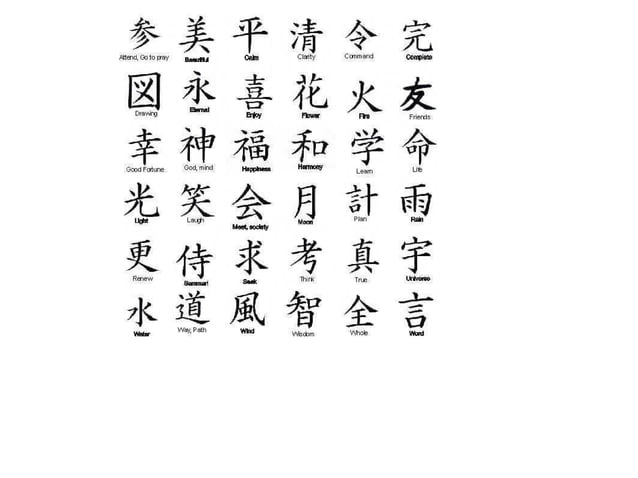 参 美 平 清 令 完
Attend, Go to pray Beautiful Calm Clarity Command Complete
図 永 喜 花 火 友
Drawing Eternal Enjoy Flower Fire Friends
幸 神 福 和 学 命
Good Fortune God, mind Happiness Harmony Learn Life
光 笑 会 月 計 雨
Light Laugh Meet, society Moon Plan Rain
更 侍 求 考 真 宇
Renew Samurai Seek Think True Universe
水 道 風 智 全 言
Water Way, Path Wind Wisdom Whole Word